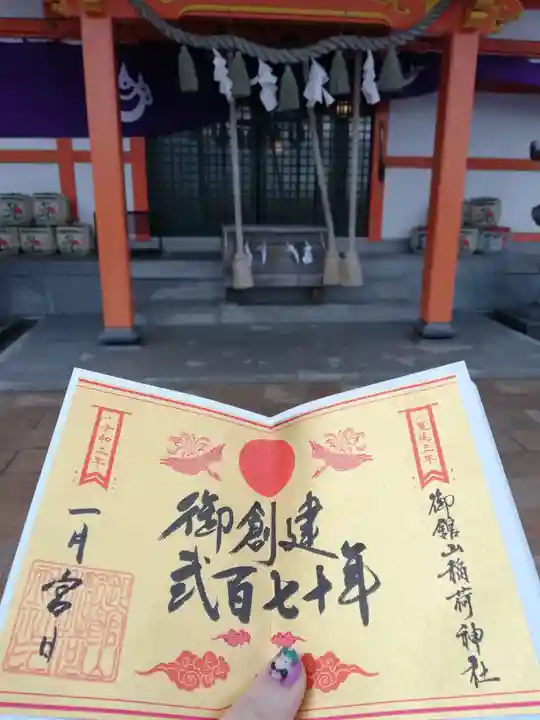 寛延三年
御館山稲荷神社
御創建
弐百七十年
令和二年
一月宮日